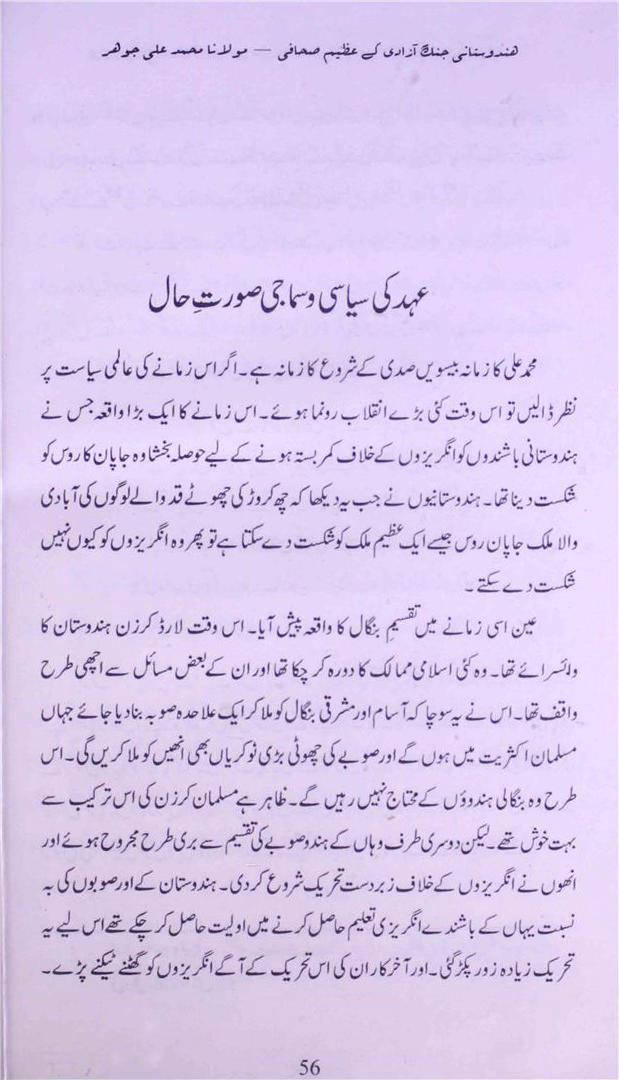 ھندوستانی جنگ آزادی کے عظیم صحافی — مولانا محمد علی جوھر
عہد کی سیاسی وسماجی صورتِ حال
محمد علی کا زمانہ بیسویں صدی کے شروع کا زمانہ ہے۔ اگر اس زمانے کی عالمی سیاست پر
نظر ڈالیں تو اس وقت کئی بڑے انقلاب رونما ہوئے۔ اس زمانے کا ایک بڑا واقعہ جس نے
ہندوستانی باشندوں کو انگریزوں کے خلاف کمربستہ ہونے کے لیے حوصلہ بخشا وہ جاپان کا روس کو
شکست دینا تھا۔ ہندوستانیوں نے جب یہ دیکھا کہ چھ کروڑ کی چھوٹے قد والے لوگوں کی آبادی
والا ملک جاپان روس جیسے ایک عظیم ملک کو شکست دے سکتا ہے تو پھر وہ انگریزوں کو کیوں نہیں
شکست دے سکتے۔
عین اسی زمانے میں تقسیمِ بنگال کا واقعہ پیش آیا۔ اس وقت لارڈ کرزن ہندوستان کا
وائسرائے تھا۔ وہ کئی اسلامی ممالک کا دورہ کر چکا تھا اور ان کے بعض مسائل سے اچھی طرح
واقف تھا۔ اس نے یہ سوچا کہ آسام اور مشرقی بنگال کو ملا کر ایک علاحدہ صوبہ بنا دیا جائے جہاں
مسلمان اکثریت میں ہوں گے اور صوبے کی چھوٹی بڑی نوکریاں بھی انھیں کو ملا کریں گی۔ اس
طرح وہ بنگالی ہندوؤں کے محتاج نہیں رہیں گے۔ ظاہر ہے مسلمان کرزن کی اس ترکیب سے
بہت خوش تھے۔ لیکن دوسری طرف وہاں کے ہندو صوبے کی تقسیم سے بری طرح مجروح ہوئے اور
انھوں نے انگریزوں کے خلاف زبردست تحریک شروع کر دی۔ ہندوستان کے اور صوبوں کی بہ
نسبت یہاں کے باشندے انگریزی تعلیم حاصل کرنے میں اولیت حاصل کر چکے تھے اس لیے یہ
تحریک زیادہ زور پکڑ گئی۔ اور آخر کار ان کی اس تحریک کے آگے انگریزوں کو گھٹنے ٹیکنے پڑے۔
56